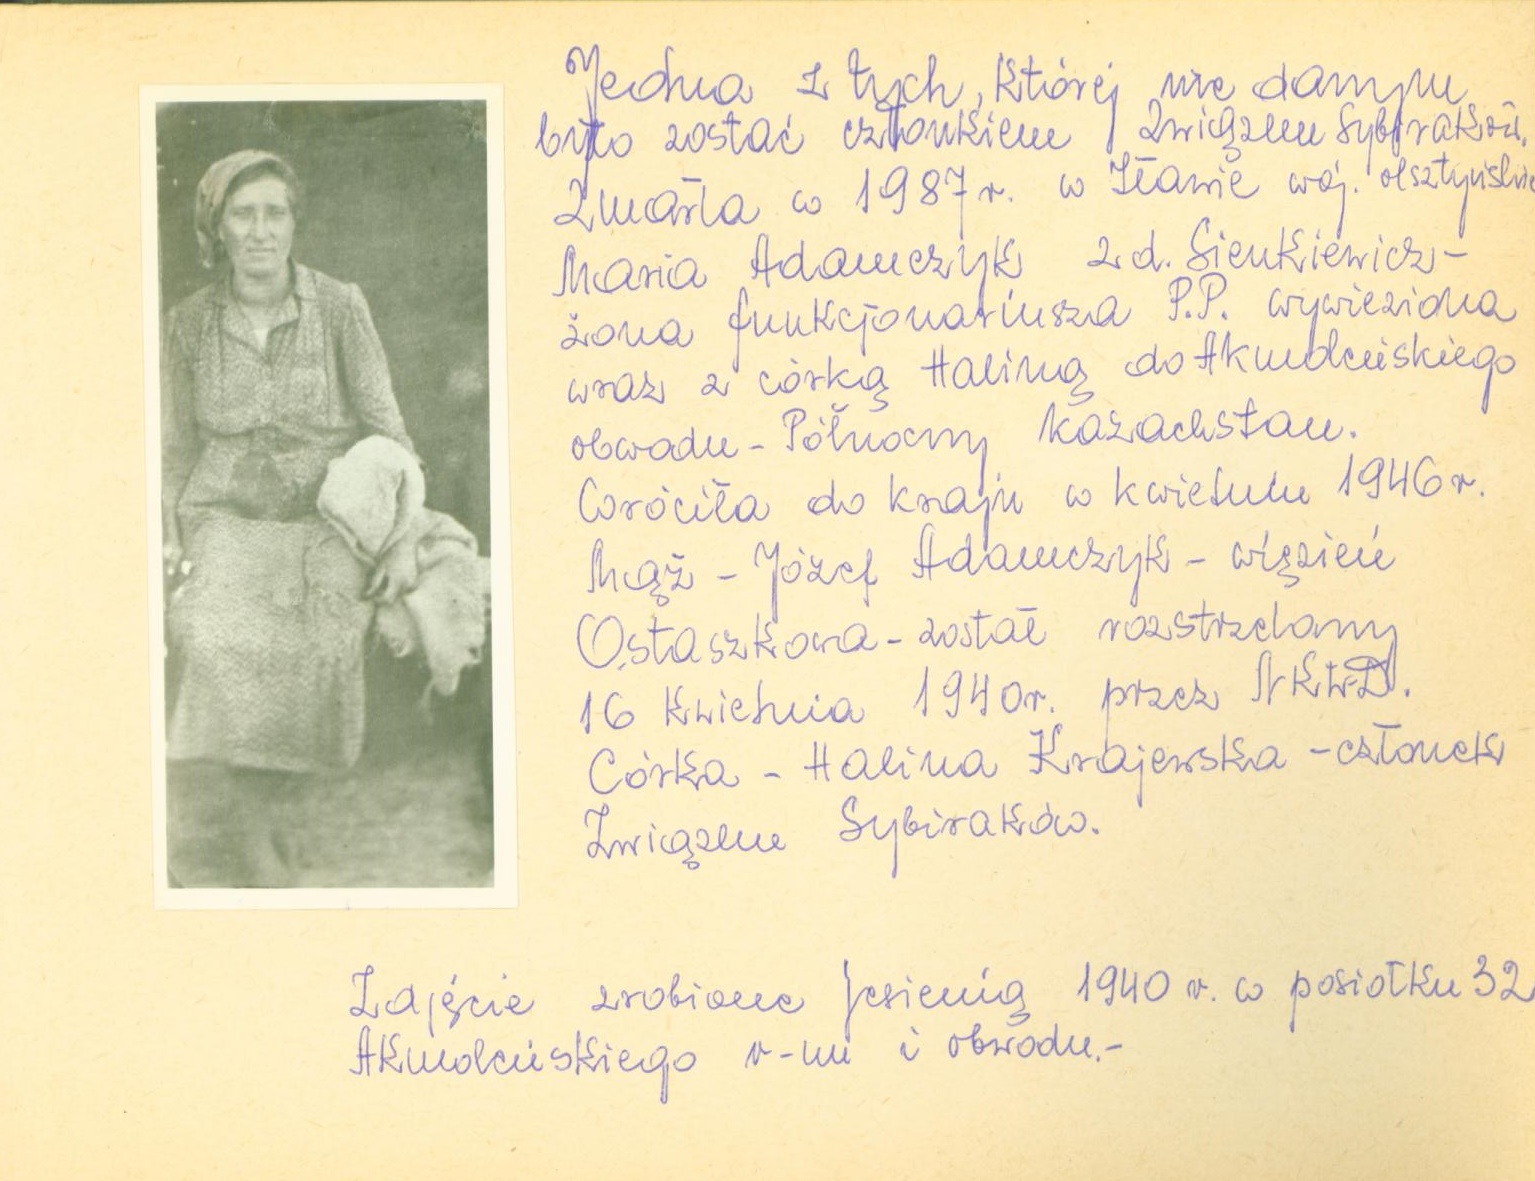 Jedna z tych, której nie danym
było zostać członkiem Związku Sybiraków.
Zmarła w 1987 r. w Iławie woj. olsztyńskie
Maria Adamczyk z d. Sienkiewicz -
żona funkcjonariusza P.P. wywieziona
wraz z córką Haliną do Akmoleńskiego
obwodu - Północny Kazachstan.
Wróciła do kraju w kwietniu 1946 r.
Mąż - Józef Adamczyk - więzień
Ostaszkowa - został rozstrzelany
16 kwietnia 1940 r. przez NKWD.
Córka - Halina Krajewska - członek
Związku Sybiraków.
Zdjęcie zrobione jesienią 1940 r. w posiołku 32
Akmoleńskiego r-nu i obwodu.-